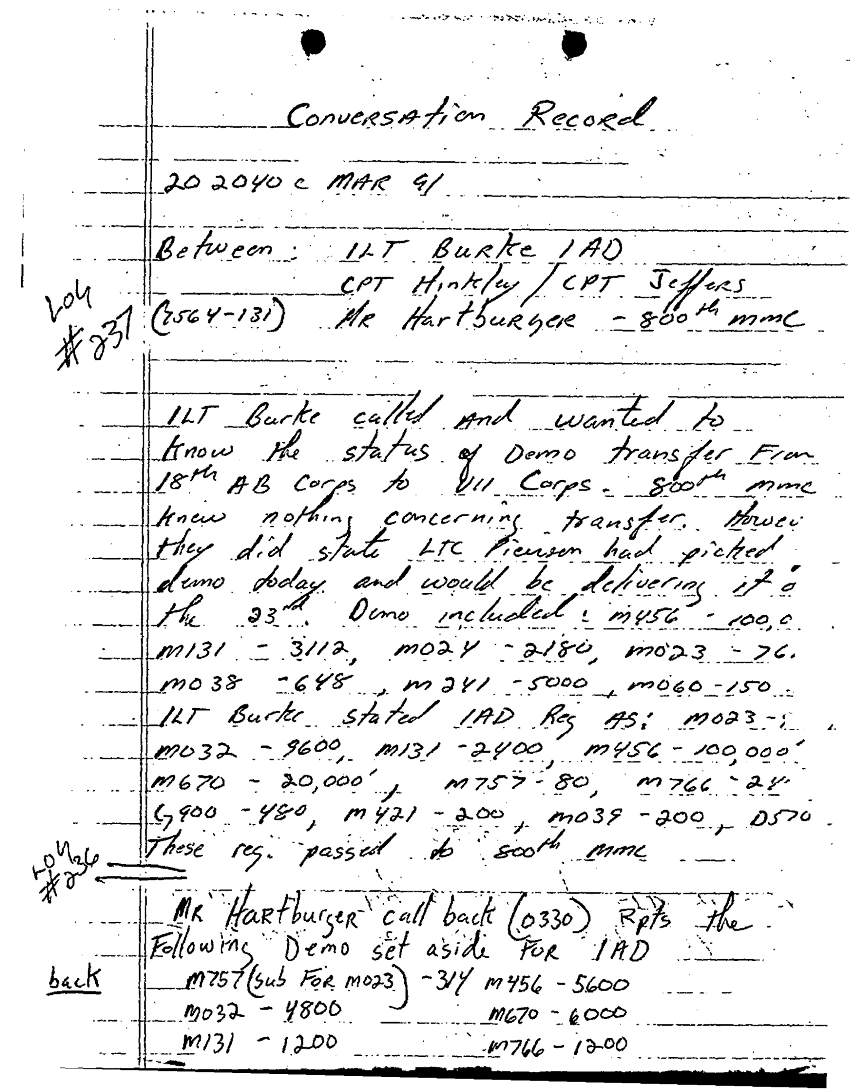 Conversation Record
20 2040 c MAR 91
Between: 1LT Burke 1AD
CPT Hinkley / CPT Jeffers
Log #237
(7564-131) Mr Hartburger - 800th mmc
1LT Burke called and wanted to
know the status of Demo transfer From
18th AB Corps to VII Corps. 800th mmc
knew nothing concerning transfer. Howev
they did state LTC Pierson had picked
demo today and would be delivering it o
the 23rd. Demo included: m456 - 100,0
m131 - 3112, m024 - 2180, m023 - 76
m038 - 648, m241 - 5000, m060 - 150
1LT Burke stated 1AD Req AS: m023 -
m032 - 9600, m131 - 2400, m456 - 100,000'
m670 - 20,000', m757 - 80, m766 - 24
G900 - 480, m421 - 200, m039 - 200, D570
These req. passed to 800th mmc
Log #236
Mr Hartburger call back (0330) Rpts the
Following Demo set aside FOR 1AD
back
m757 (sub For m023) - 314 m456 - 5600
m032 - 4800 m670 - 6000
m131 - 1200 m766 - 1200